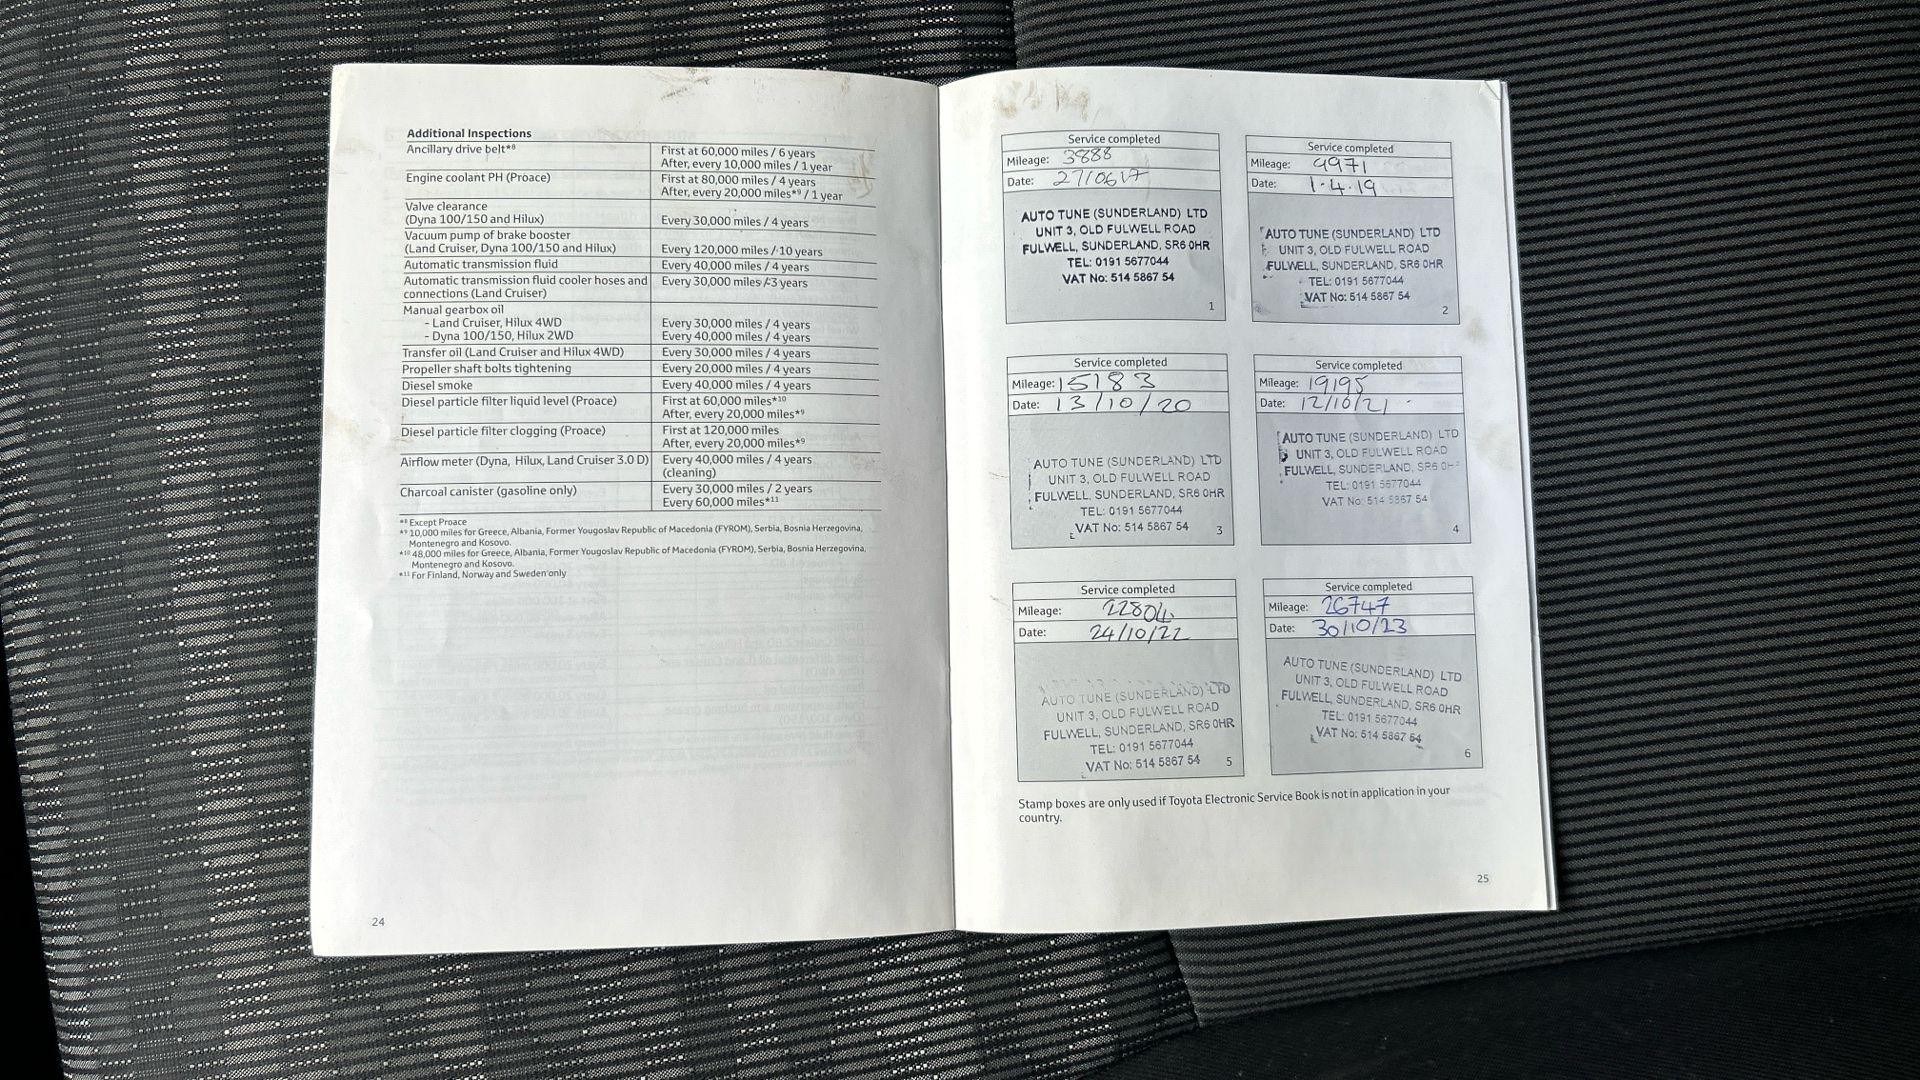 Additional Inspections
Ancillary drive belt*8 First at 60,000 miles / 6 years
After, every 10,000 miles / 1 year
Engine coolant PH (Proace) First at 80,000 miles / 4 years
After, every 20,000 miles*9 / 1 year
Valve clearance
(Dyna 100/150 and Hilux) Every 30,000 miles / 4 years
Vacuum pump of brake booster
(Land Cruiser, Dyna 100/150 and Hilux) Every 120,000 miles / 10 years
Automatic transmission fluid Every 40,000 miles / 4 years
Automatic transmission fluid cooler hoses and Every 30,000 miles / 3 years
connections (Land Cruiser)
Manual gearbox oil
- Land Cruiser, Hilux 4WD Every 30,000 miles / 4 years
- Dyna 100/150, Hilux 2WD Every 40,000 miles / 4 years
Transfer oil (Land Cruiser and Hilux 4WD) Every 30,000 miles / 4 years
Propeller shaft bolts tightening Every 20,000 miles / 4 years
Diesel smoke Every 40,000 miles / 4 years
Diesel particle filter liquid level (Proace) First at 60,000 miles*10
After, every 20,000 miles*9
Diesel particle filter clogging (Proace) First at 120,000 miles
After, every 20,000 miles*9
Airflow meter (Dyna, Hilux, Land Cruiser 3.0 D) Every 40,000 miles / 4 years
(cleaning)
Charcoal canister (gasoline only) Every 30,000 miles / 2 years
Every 60,000 miles*11
*8 Except Proace
*9 10,000 miles for Greece, Albania, Former Yougoslav Republic of Macedonia (FYROM), Serbia, Bosnia Herzegovina,
Montenegro and Kosovo.
*10 48,000 miles for Greece, Albania, Former Yougoslav Republic of Macedonia (FYROM), Serbia, Bosnia Herzegovina,
Montenegro and Kosovo.
*11 For Finland, Norway and Sweden only
24
Service completed
Mileage: 3888
Date: 27/06/17
AUTO TUNE (SUNDERLAND) LTD
UNIT 3, OLD FULWELL ROAD
FULWELL, SUNDERLAND, SR6 0HR
TEL: 0191 5677044
VAT No: 514 5867 54
1
Service completed
Mileage: 9971
Date: 1.4.19
AUTO TUNE (SUNDERLAND) LTD
UNIT 3, OLD FULWELL ROAD
FULWELL, SUNDERLAND, SR6 0HR
TEL: 0191 5677044
VAT No: 514 5867 54
2
Service completed
Mileage: 15183
Date: 13/10/20
AUTO TUNE (SUNDERLAND) LTD
UNIT 3, OLD FULWELL ROAD
FULWELL, SUNDERLAND, SR6 0HR
TEL: 0191 5677044
VAT No: 514 5867 54
3
Service completed
Mileage: 19195
Date: 12/10/21
AUTO TUNE (SUNDERLAND) LTD
UNIT 3, OLD FULWELL ROAD
FULWELL, SUNDERLAND, SR6 0HR
TEL: 0191 5677044
VAT No: 514 5867 54
4
Service completed
Mileage: 22804
Date: 24/10/22
AUTO TUNE (SUNDERLAND) LTD
UNIT 3, OLD FULWELL ROAD
FULWELL, SUNDERLAND, SR6 0HR
TEL: 0191 5677044
VAT No: 514 5867 54
5
Service completed
Mileage: 26747
Date: 30/10/23
AUTO TUNE (SUNDERLAND) LTD
UNIT 3, OLD FULWELL ROAD
FULWELL, SUNDERLAND, SR6 0HR
TEL: 0191 5677044
VAT No: 514 5867 54
6
Stamp boxes are only used if Toyota Electronic Service Book is not in application in your
country.
25